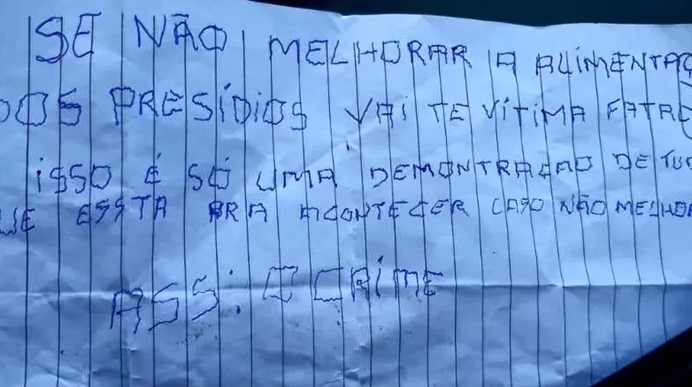 SE NÃO MELHORAR A ALIMENTAÇ
DOS PRESÍDIOS VAI TE VÍTIMA FATAL
ISSO É SÓ UMA DEMONTRAÇAO DE TUD
UE ESSTA PRA ACONTECER CASO NÃO MELHOR
ASS: O CRIME